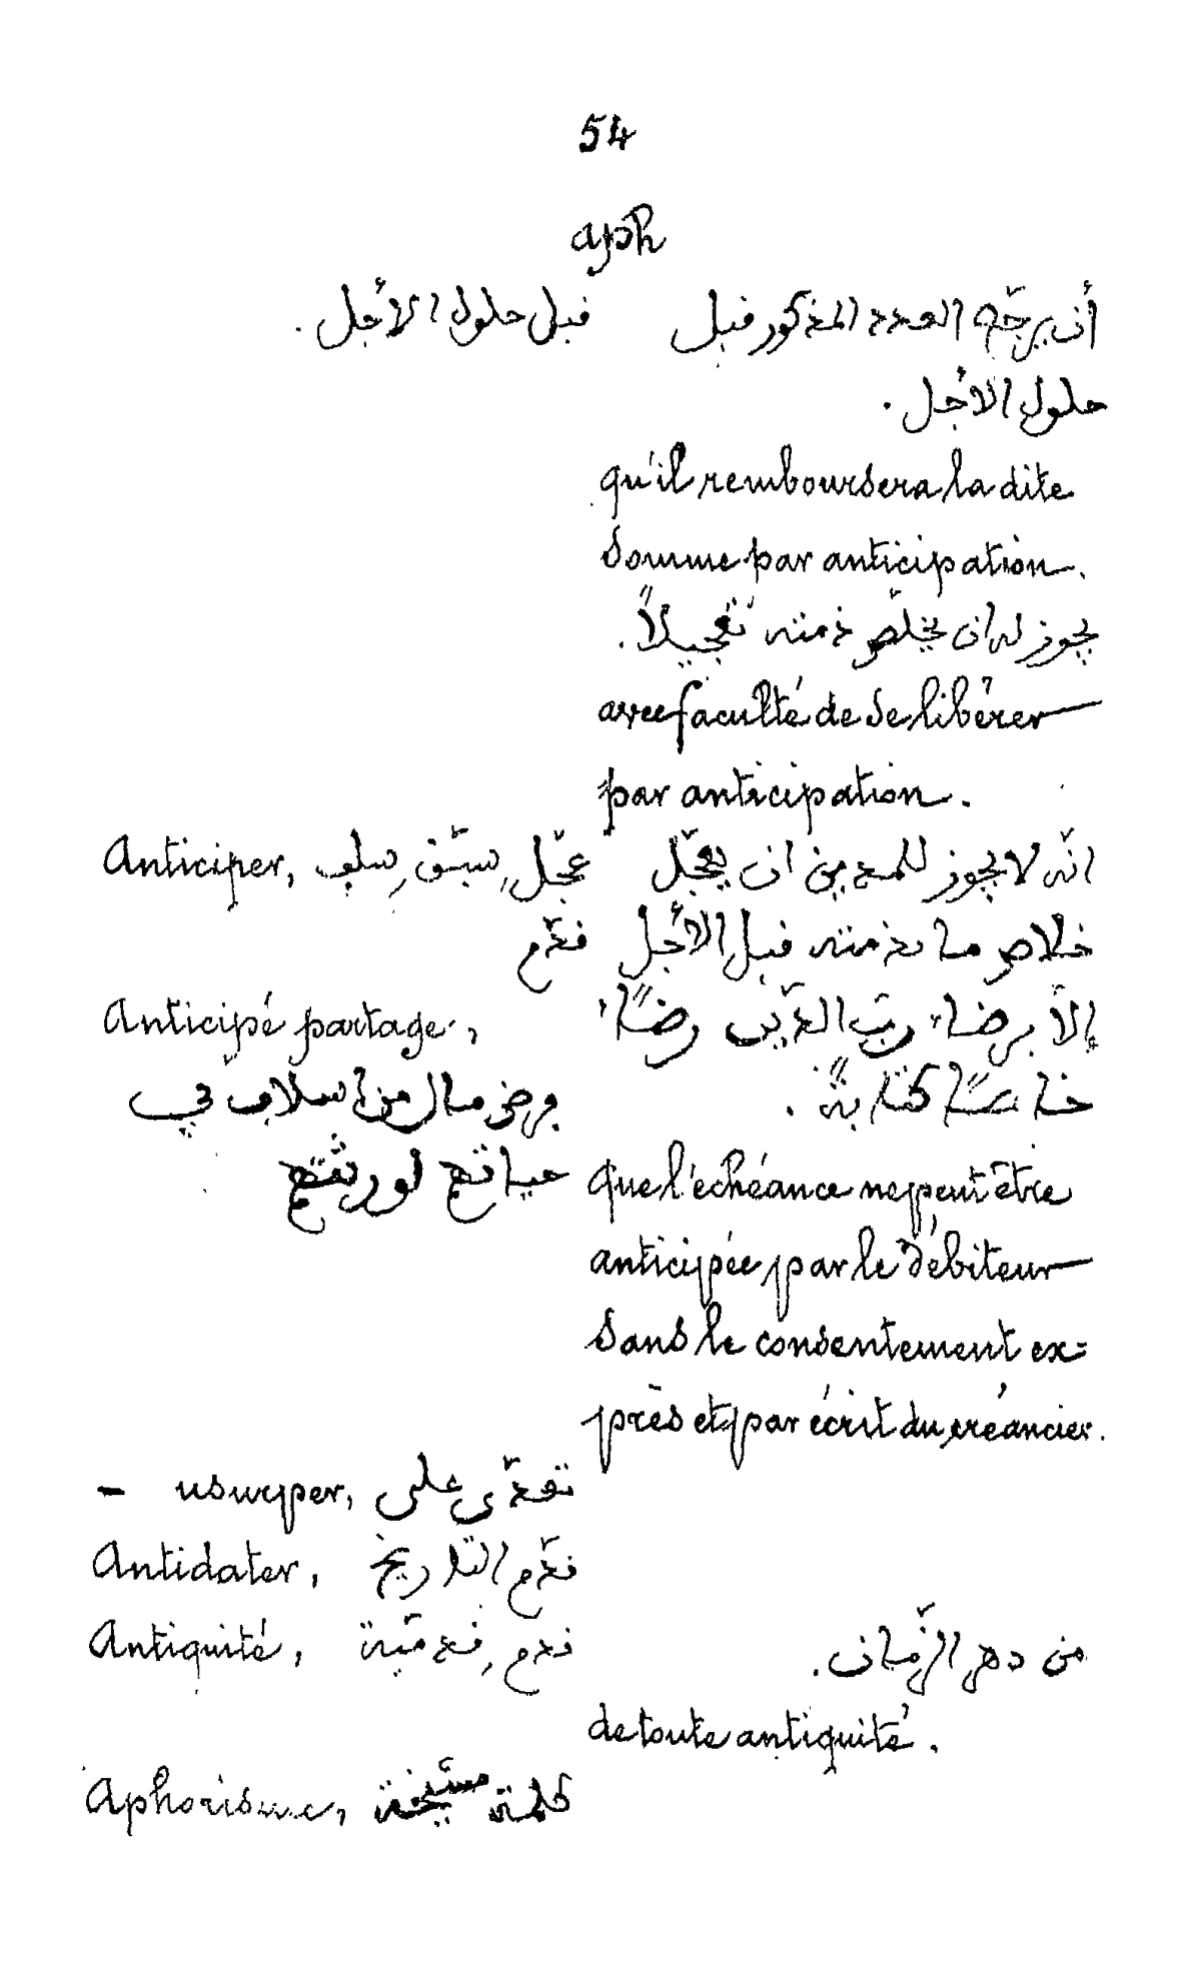 54
aph
أن يرجّع العدد المذكور قبل
قبل حلول الأجل.
حلول الأجل.
qu'il remboursera la dite
somme par anticipation.
يجوز له ان يخلّص ذمته تعجيلاً.
avec faculté de se libérer
par anticipation.
Anticiper, عجّل, سبّق, سلف
انّه لا يجوز للمدين ان يعجّل
قدّم
خلاص ما بذمته قبل الأجل
Anticipé partage,
إلاّ برضاء ربّ الدّين رضًا
فرض مال من اسلاف في
خاصًا كتابةً.
حياتهم لورثتهم
que l'échéance ne peut être
anticipée par le débiteur
sans le consentement ex=
près et par écrit du créancier.
- usurper, تعدّى على
Antidater, قدّم التاريخ
Antiquité, قدم, قدميّة
من دهر الزّمان.
de toute antiquité.
Aphorisme, كلمة